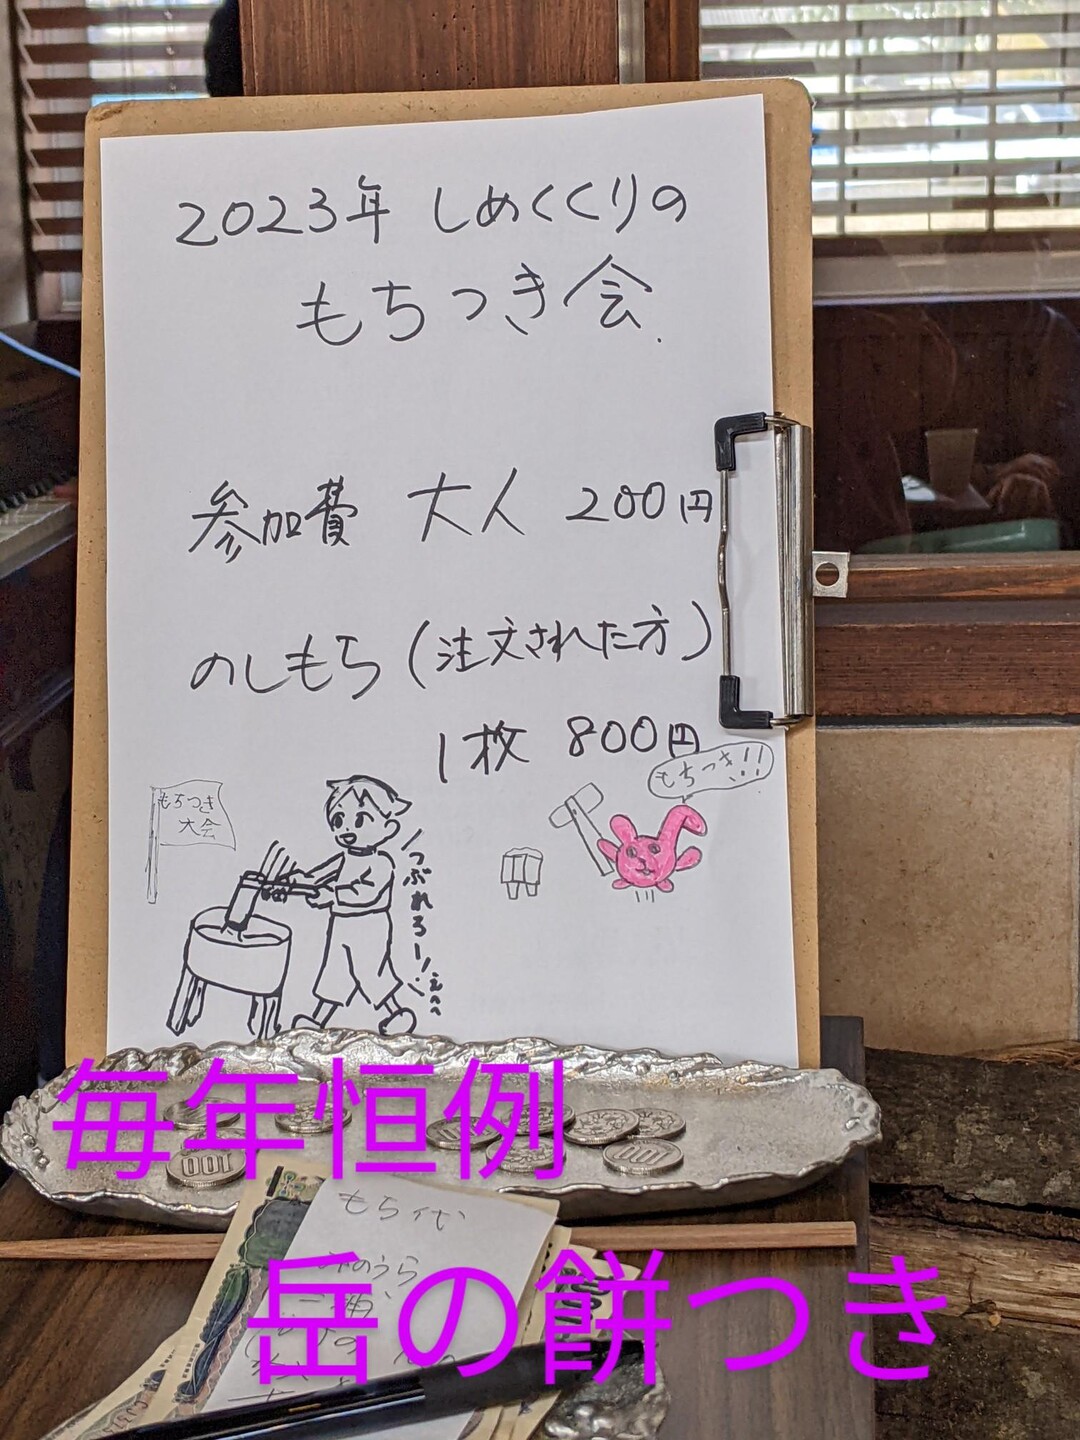 2023年 しめくくりの
もちつき会.
参加費 大人 200円
のしもち(注文された方)
1枚 800円
もちつき!!
もちつき
大会
つぶれろー!
えへへ
毎年恒例
100
100
もち代
みのうら
岳の餅つき